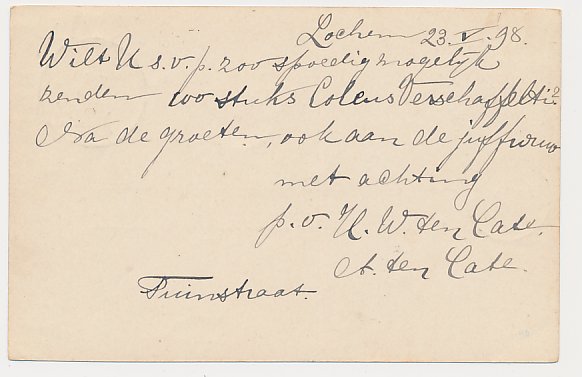 Lochem 23. V. 98.
Wilt U s.v.p. zoo spoedig mogelijk
zenden 100 stuks Coleus Verschaffelti?
Na de groeten, ook aan de juffrouw
met achting
p.o. H. W. ten Cate.
A. ten Cate.
Tuinstraat.